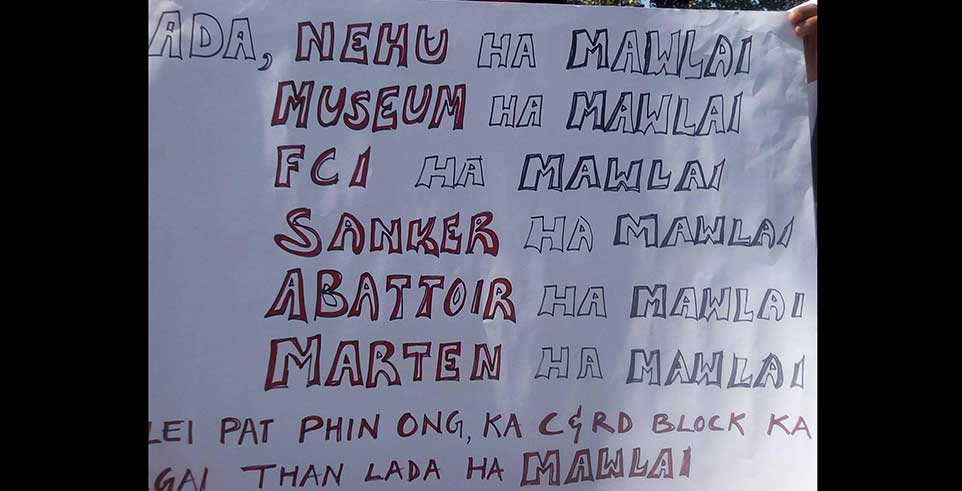 ADA, NEHU HA MAWLAI
MUSEUM HA MAWLAI
FCI HA MAWLAI
SANKER HA MAWLAI
ABATTOIR HA MAWLAI
MARTEN HA MAWLAI
LEI PAT PHIN ONG, KA C&RD BLOCK KA
GAI THAN LADA HA MAWLAI